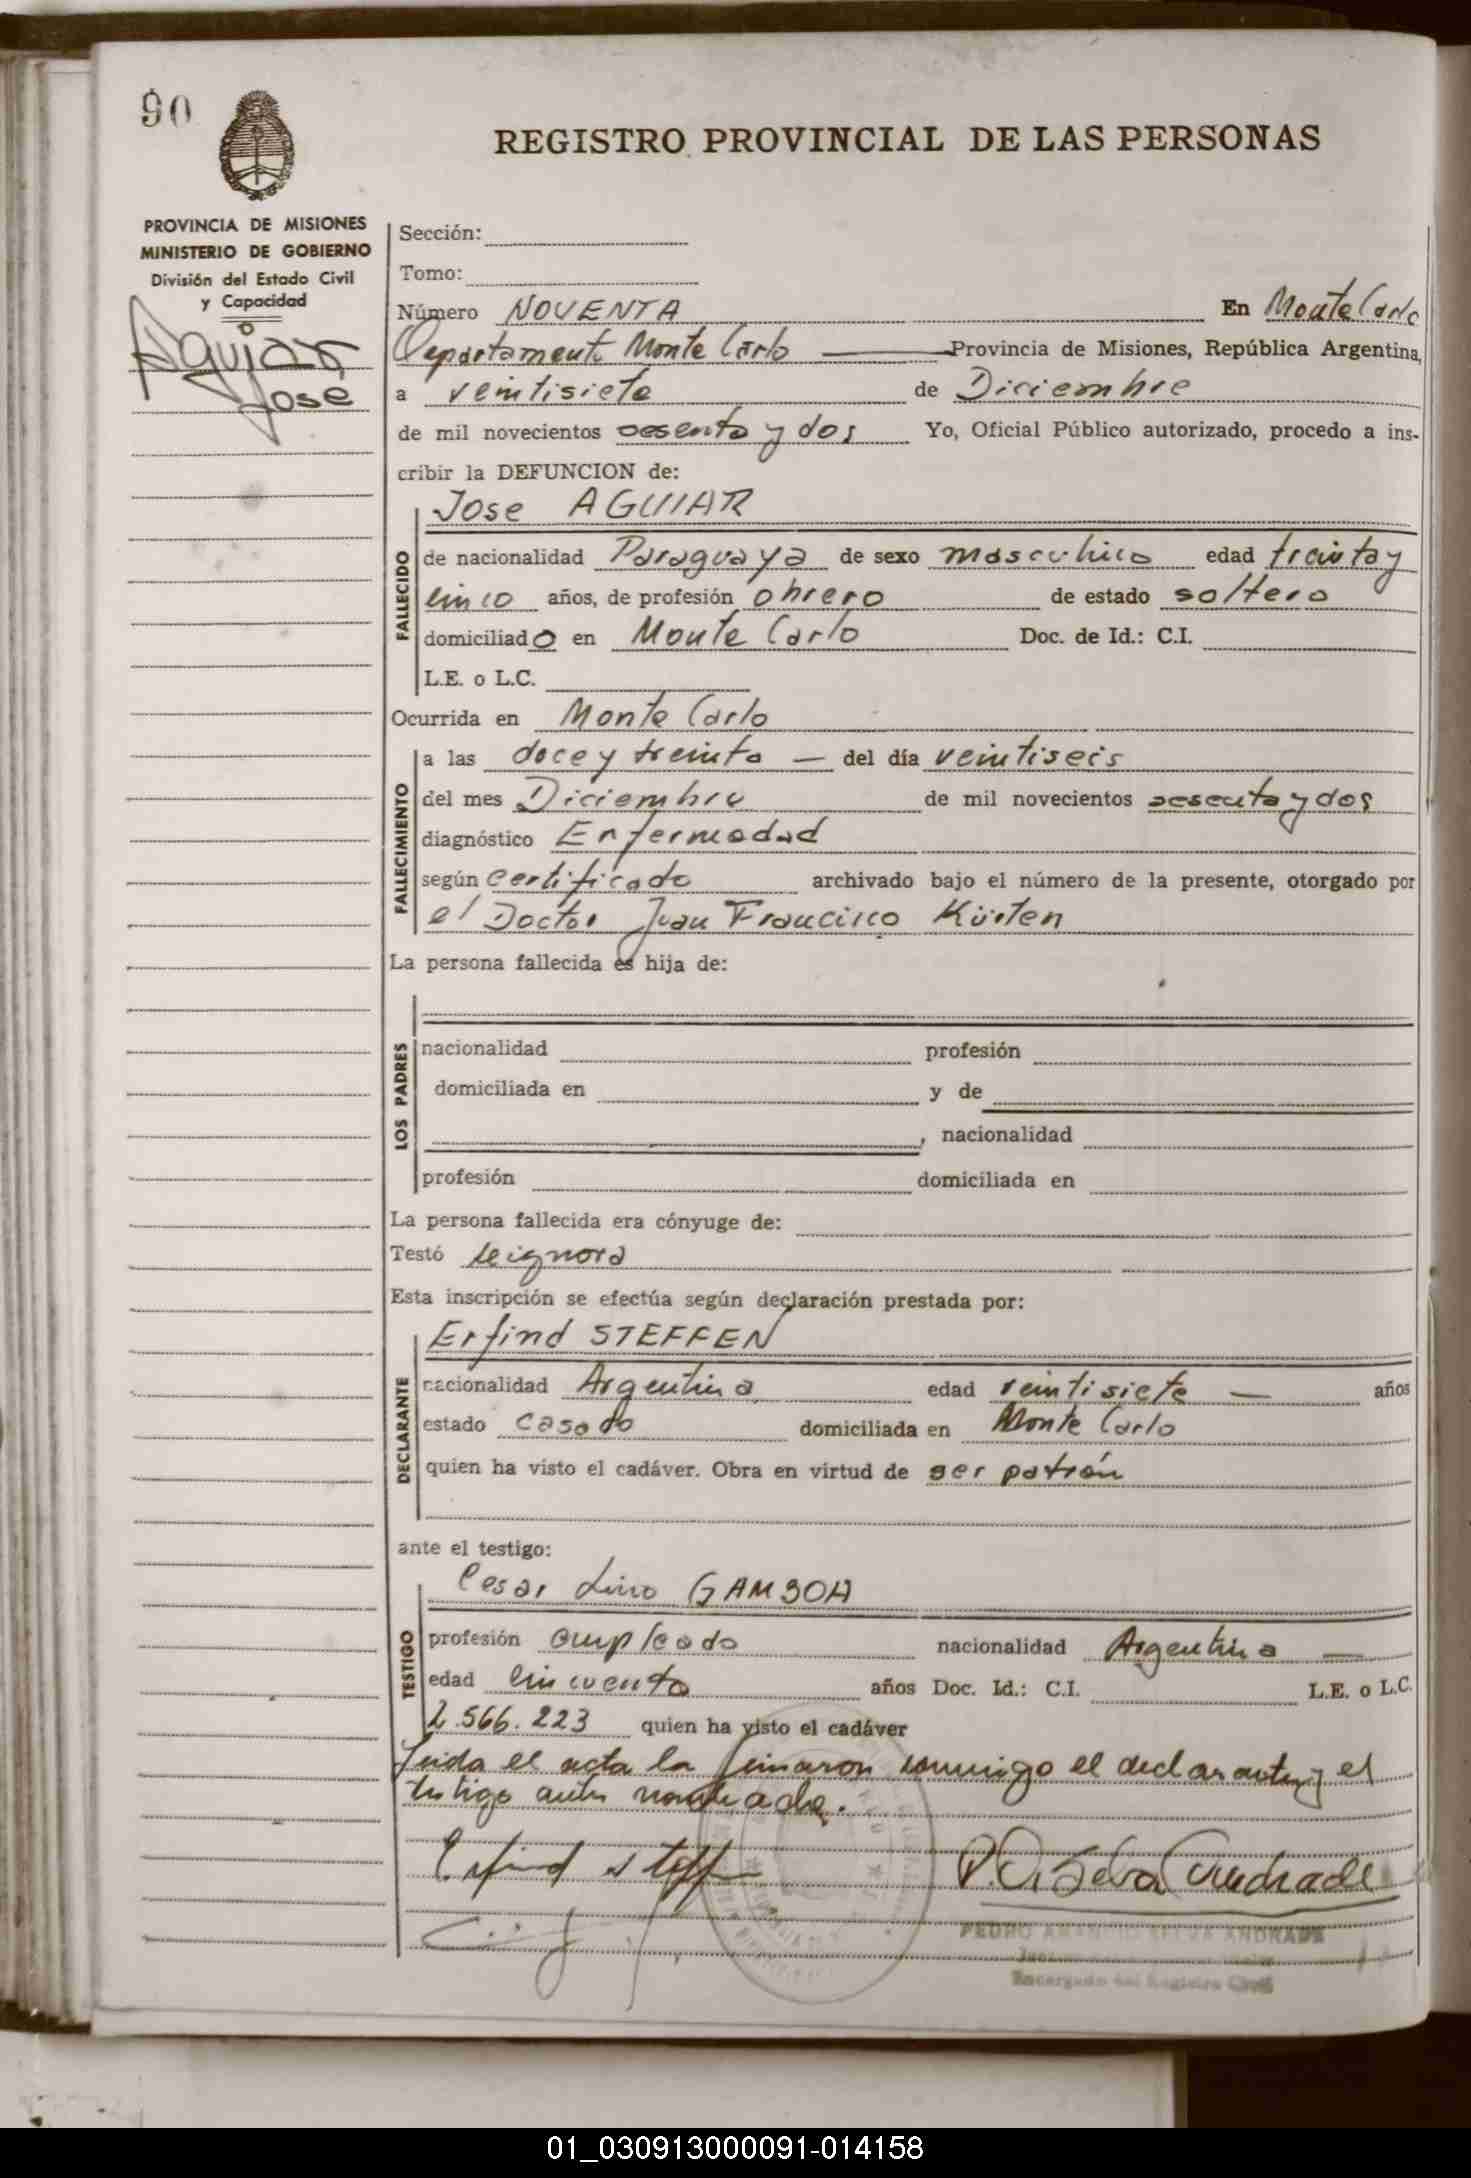 90
REGISTRO PROVINCIAL DE LAS PERSONAS
PROVINCIA DE MISIONES
MINISTERIO DE GOBIERNO
División del Estado Civil
y Capacidad
Aguiar
José
Sección:
Tomo:
Número NOVENTA En Monte Carlo
Departamento Monte Carlo — Provincia de Misiones, República Argentina,
a veintisiete de Diciembre
de mil novecientos sesenta y dos Yo, Oficial Público autorizado, procedo a ins-
cribir la DEFUNCION de:
Jose AGUIAR
FALLECIDO
de nacionalidad Paraguaya de sexo masculino edad treinta y
cinco años, de profesión obrero de estado soltero
domiciliado en Monte Carlo Doc. de Id.: C.I.
L.E. o L.C.
Ocurrida en Monte Carlo
FALLECIMIENTO
a las doce y treinta — del día veintiseis
del mes Diciembre de mil novecientos sesenta y dos
diagnóstico Enfermedad
según certificado archivado bajo el número de la presente, otorgado por
el Doctor Juan Francisco Kürten
La persona fallecida es hija de:
LOS PADRES
nacionalidad profesión
domiciliada en y de
, nacionalidad
profesión domiciliada en
La persona fallecida era cónyuge de:
Testó se ignora
Esta inscripción se efectúa según declaración prestada por:
Erfind STEFFEN
DECLARANTE
nacionalidad Argentina edad veintisiete — años
estado casado domiciliada en Monte Carlo
quien ha visto el cadáver. Obra en virtud de ser patrón
ante el testigo:
Cesar Lino GAMBOA
TESTIGO
profesión empleado nacionalidad Argentina —
edad cincuenta años Doc. Id.: C.I. L.E. o L.C.
2.566.223 quien ha visto el cadáver
Leida el acta la firmaron conmigo el declarante y el
testigo antes nombrado.
Erfind Steffen
P. A. Selva Andrade
PEDRO AMANCIO SELVA ANDRADE
Encargado del Registro Civil
01_030913000091-014158